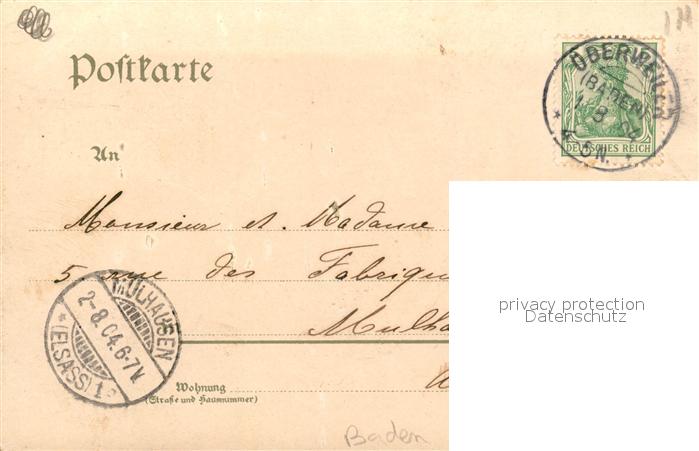 Postkarte
OBERWEILER
(BADEN)
1 8 04
4-5N.
DEUTSCHES REICH
An
Monsieur et. Madame
5 rue des Fabriqu
Mulha
MÜLHAUSEN
2-8.04.6-7V.
(ELSASS) 1
privacy protection
Datenschutz
Wohnung
(Straße und Hausnummer)
Baden